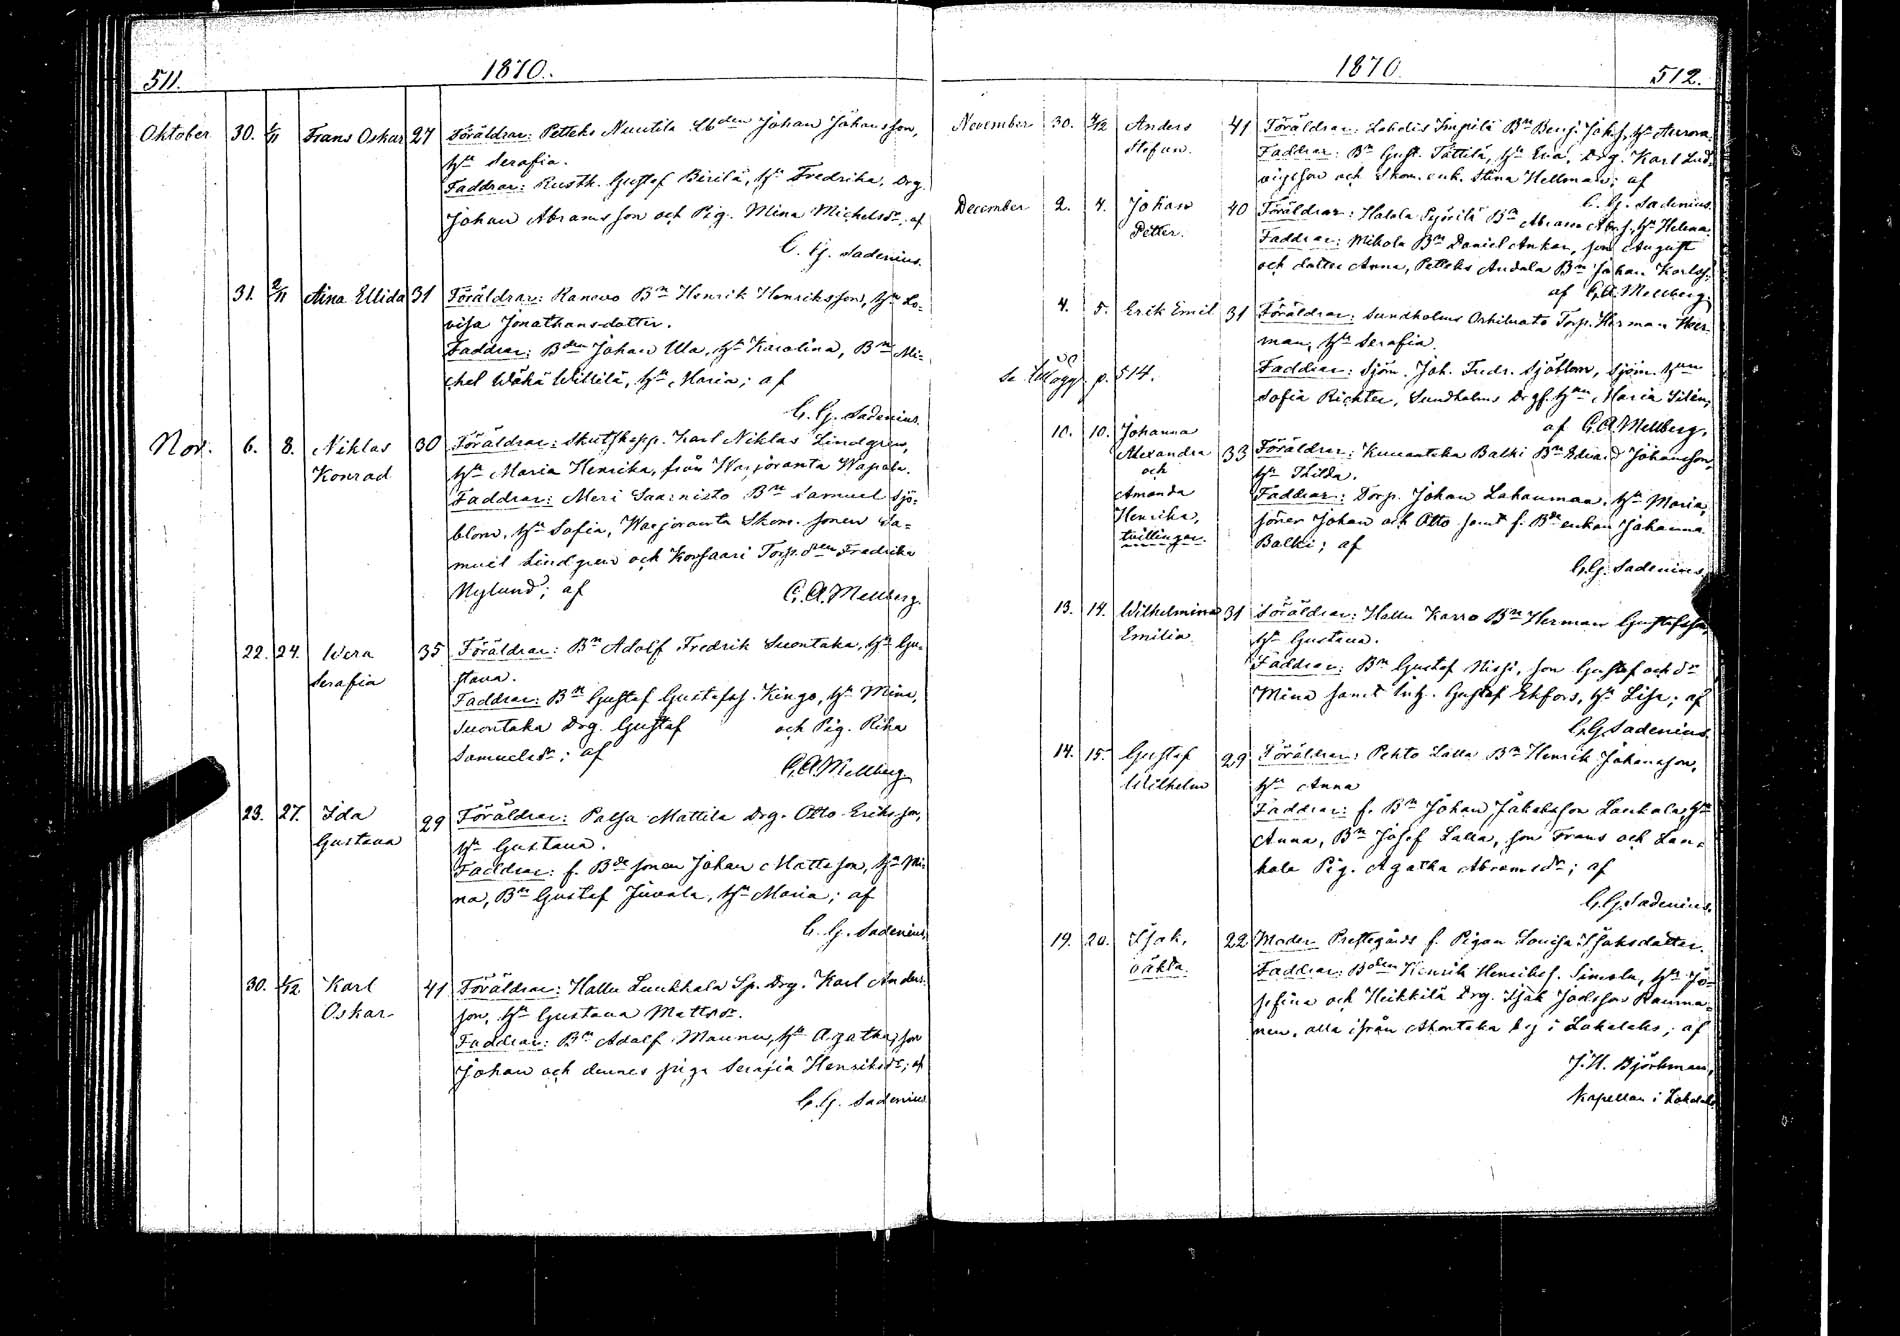 511.
1870.
Oktober 30. 1/11 Frans Oskar 27 Föräldrar: Petteks Nuutila Ab den Johan Johansson,
H:n Serafia.
Faddrar: Rusth. Gustaf Birilä, H:n Fredrika, Drg.
Johan Abramsson och Pig. Mina Michelsdr; af
C. G. Sadenius.
31. 2/11 Aina Ellida 31 Föräldrar: Kanavo B:n Henrik Henriksson, H:n Lo-
visa Jonathansdotter.
Faddrar: B:den Johan Ula, H:n Karolina, B:n Mi-
chel Wähä Willilä, H:n Maria; af
C. G. Sadenius.
Nov. 6. 8. Niklas 30 Föräldrar: Skutskepp. Karl Niklas Lindgren,
Konrad H:n Maria Henrika, från Warjoranta Wapala.
Faddrar: Meri Saaristo B:n Samuel Sjö-
blom, H:n Sofia, Warjoranta Skom. sonen Sa-
muel Lindgren och Korsaari Torp. d:en Fredrika
Nylund; af C. A. Mellberg.
22. 24. Wera 35 Föräldrar: B:n Adolf Fredrik Suontaka, H:n Gu-
Serafia stava.
Faddrar: B:n Gustaf Gustafss. Kingo, H:n Mina,
Suontaka Drg. Gustaf och Pig. Rika
Samuelsdr; af
C. A. Mellberg.
23. 27. Ida 29 Föräldrar: Palsa Mattila Drg. Otto Eriksson,
Gustava H:n Gustava.
Faddrar: f. B:de sonen Johan Mattsson, H:n Mi-
na, B:n Gustaf Juvala, H:n Maria; af
C. G. Sadenius.
30. 1/12. Karl 41 Föräldrar: Hallu Luukkala Sp. Drg. Karl Anders-
Oskar son, H:n Gustava Mattsdr.
Faddrar: B:n Adolf Maunu, H:n Agatha, son
Johan och dennes piga Serafia Henriksdr; af
C. G. Sadenius.
1870.
512.
November 30. 4/12 Anders 41 Föräldrar: Lahdis Impilä B:n Benj. Johss, H:n Aurora.
Stefan. Faddrar: B:n Gust. Tättilä, H:n Eva, Drg. Karl Lud-
vigsson och Skom. enk. Stina Hellman; af
C. G. Sadenius.
December 2. 4. Johan 40 Föräldrar: Hatola Pyörilä B:n Abram Abr.s, H:n Helena.
Petter. Faddrar: Mikola B:n Daniel Ankar, son August
och dotter Anna, Petteks Andala B:n Johan Karlss.
af C. A. Mellberg.
4. 5. Erik Emil 31 Föräldrar: Sundholms Torp. Herman Her-
man, H:n Serafia.
Se p. 514. Faddrar: Sjöm. Joh. Fredr. Sjöblom, Sjöm. H:un
Sofia Richter, Sundholms Drgs. H:un Maria Silén;
af C. A. Mellberg.
10. 10. Johanna
Alexandra 33 Föräldrar: Balki B:n Edvard Johansson,
och H:n Thilda.
Amanda Faddrar: Torp. Johan Lahanmaa, H:n Maria,
Henrika, söner Johan och Otto samt f. B:de enkan Johanna
tvillingar. Balki; af
C. G. Sadenius.
13. 14. Wilhelmina 31 Föräldrar: Hallu Karro B:n Herman Gustafsson,
Emilia H:n Gustava.
Faddrar: B:n Gustaf Nissi, son Gustaf och dr
Mina samt Inh. Gustaf Ekfors, H:n Lisa; af
C. G. Sadenius.
14. 15. Gustaf 29 Föräldrar: Pehto Lalla B:n Henrik Johansson,
Wilhelm H:n Anna
Faddrar: f. B:n Johan Jakobsson Laukala, H:n
Anna, B:n Josef Lalla, son Frans och Lau-
kala Pig. Agatha Abramsdr; af
C. G. Sadenius.
19. 20. Isak, 22 Moder Prestegårds f. Pigan Lovisa Isaksdotter.
oäkta. Faddrar: B:den Henrik Henrikss. Simola, H:n Jo-
sefina och Heikkilä Drg. Isak Joelsson Rauma-
nen, alla ifrån by i Lokalaks; af
J. H. Björkman,
Kapellan i Lokalaks